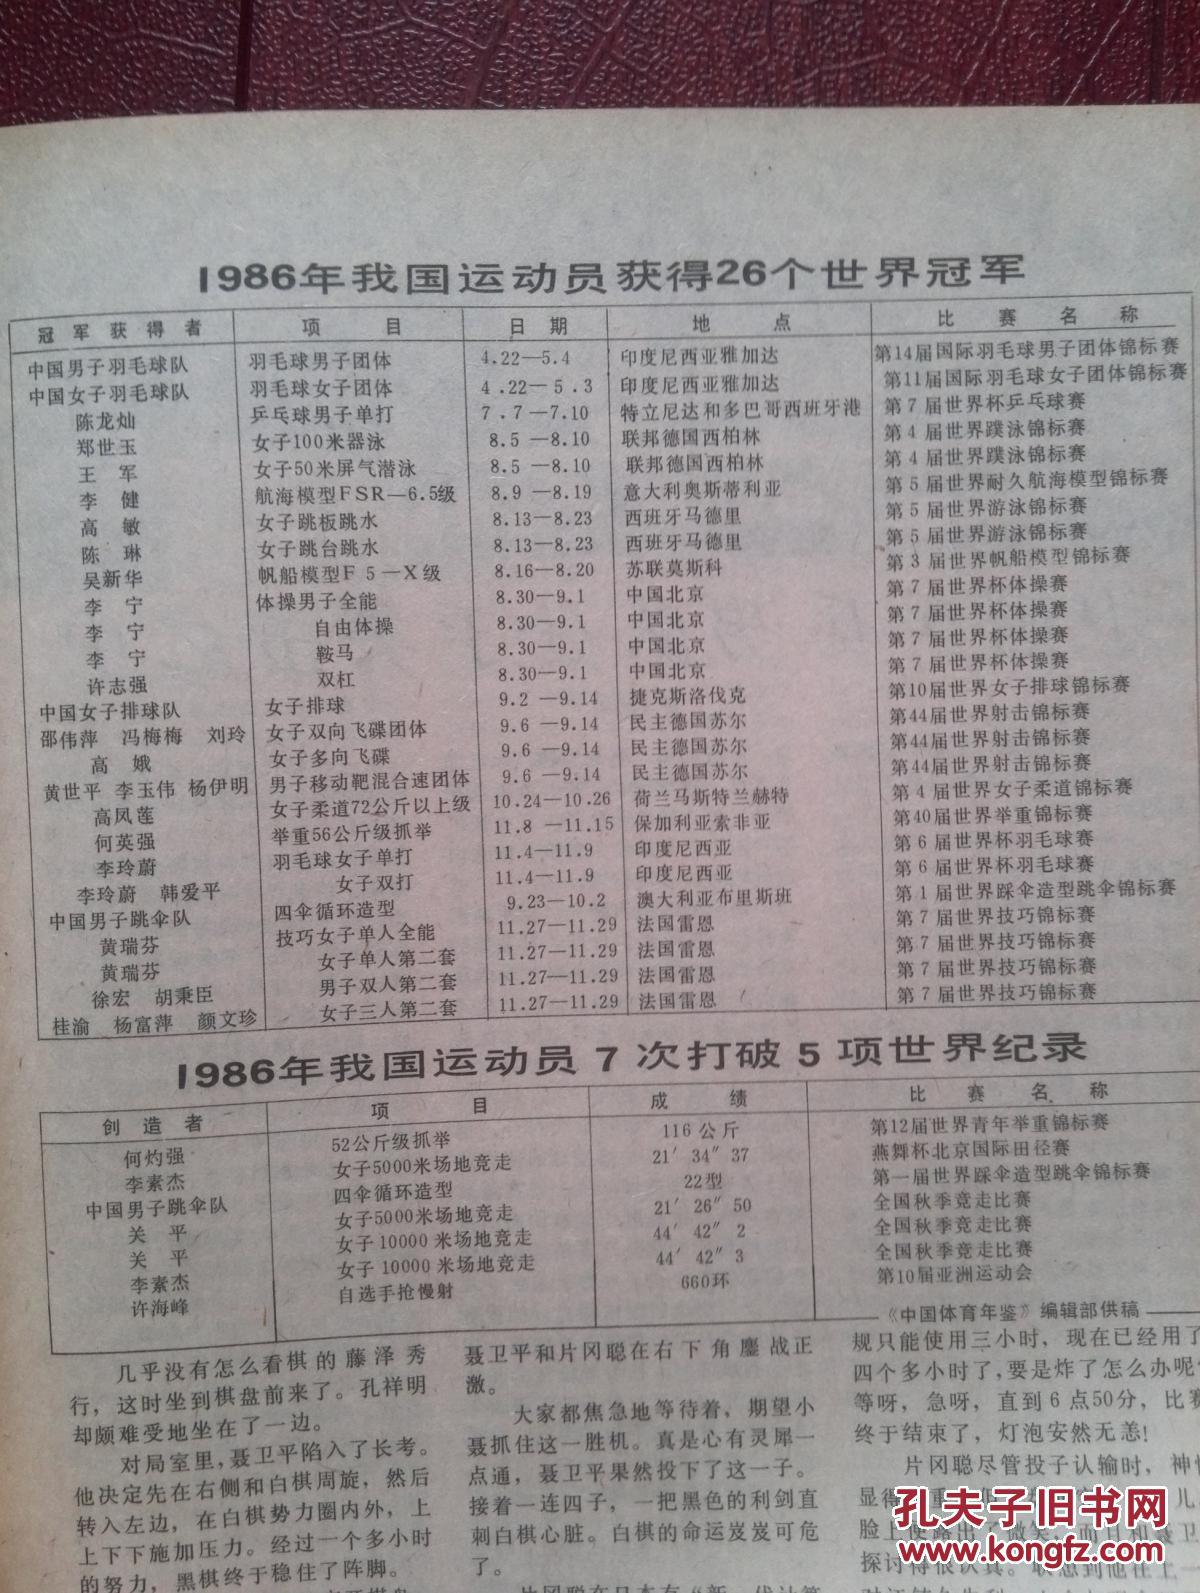 1986年我国运动员获得26个世界冠军
冠军获得者 项目 日期 地点 比赛名称
中国男子羽毛球队 羽毛球男子团体 4.22—5.4 印度尼西亚雅加达 第14届国际羽毛球男子团体锦标赛
中国女子羽毛球队 羽毛球女子团体 4.22—5.3 印度尼西亚雅加达 第11届国际羽毛球女子团体锦标赛
陈龙灿 乒乓球男子单打 7.7—7.10 特立尼达和多巴哥西班牙港 第7届世界杯乒乓球赛
郑世玉 女子100米器泳 8.5—8.10 联邦德国西柏林 第4届世界蹼泳锦标赛
王军 女子50米屏气潜泳 8.5—8.10 联邦德国西柏林 第4届世界蹼泳锦标赛
李健 航海模型FSR—6.5级 8.9—8.19 意大利奥斯蒂利亚 第5届世界耐久航海模型锦标赛
高敏 女子跳板跳水 8.13—8.23 西班牙马德里 第5届世界游泳锦标赛
陈琳 女子跳台跳水 8.13—8.23 西班牙马德里 第5届世界游泳锦标赛
吴新华 帆船模型F5—X级 8.16—8.20 苏联莫斯科 第3届世界帆船模型锦标赛
李宁 体操男子全能 8.30—9.1 中国北京 第7届世界杯体操赛
李宁 自由体操 8.30—9.1 中国北京 第7届世界杯体操赛
李宁 鞍马 8.30—9.1 中国北京 第7届世界杯体操赛
许志强 双杠 8.30—9.1 中国北京 第7届世界杯体操赛
中国女子排球队 女子排球 9.2—9.14 捷克斯洛伐克 第10届世界女子排球锦标赛
邵伟萍 冯梅梅 刘玲 女子双向飞碟团体 9.6—9.14 民主德国苏尔 第44届世界射击锦标赛
高娥 女子多向飞碟 9.6—9.14 民主德国苏尔 第44届世界射击锦标赛
黄世平 李玉伟 杨伊明 男子移动靶混合速团体 9.6—9.14 民主德国苏尔 第44届世界射击锦标赛
高凤莲 女子柔道72公斤以上级 10.24—10.26 荷兰马斯特兰赫特 第4届世界女子柔道锦标赛
何英强 举重56公斤级抓举 11.8—11.15 保加利亚索非亚 第40届世界举重锦标赛
李玲蔚 羽毛球女子单打 11.4—11.9 印度尼西亚 第6届世界杯羽毛球赛
李玲蔚 韩爱平 女子双打 11.4—11.9 印度尼西亚 第6届世界杯羽毛球赛
中国男子跳伞队 四伞循环造型 9.23—10.2 澳大利亚布里斯班 第1届世界踩伞造型跳伞锦标赛
黄瑞芬 技巧女子单人全能 11.27—11.29 法国雷恩 第7届世界技巧锦标赛
黄瑞芬 女子单人第二套 11.27—11.29 法国雷恩 第7届世界技巧锦标赛
徐宏 胡秉臣 男子双人第二套 11.27—11.29 法国雷恩 第7届世界技巧锦标赛
桂渝 杨富萍 颜文珍 女子三人第二套 11.27—11.29 法国雷恩 第7届世界技巧锦标赛
1986年我国运动员7次打破5项世界纪录
创造者 项目 成绩 比赛名称
何灼强 52公斤级抓举 116公斤 第12届世界青年举重锦标赛
李素杰 女子5000米场地竞走 21′34″37 燕舞杯北京国际田径赛
中国男子跳伞队 四伞循环造型 22型 第一届世界踩伞造型跳伞锦标赛
关平 女子5000米场地竞走 21′26″50 全国秋季竞走比赛
关平 女子10000米场地竞走 44′42″2 全国秋季竞走比赛
李素杰 女子10000米场地竞走 44′42″3 全国秋季竞走比赛
许海峰 自选手抢慢射 660环 第10届亚洲运动会
《中国体育年鉴》编辑部供稿
几乎没有怎么看棋的藤泽秀
行，这时坐到棋盘前来了。孔祥明
却颇难受地坐在了一边。
对局室里，聂卫平陷入了长考。
他决定先在右侧和白棋周旋，然后
转入左边，在白棋势力圈内外，上
上下下施加压力。经过一个多小时
的努力，黑棋终于稳住了阵脚。
聂卫平和片冈聪在右下角鏖战正
激。
大家都焦急地等待着，期望小
聂抓住这一胜机。真是心有灵犀一
点通，聂卫平果然投下了这一子。
接着一连四子，一把黑色的利剑直
刺白棋心脏。白棋的命运岌岌可危
了。
规只能使用三小时，现在已经用了
四个多小时了，要是炸了怎么办呢
等呀，急呀，直到6点50分，比赛
终于结束了，灯泡安然无恙！
片冈聪尽管投子认输时，神
显得
脸上便露出了微笑，而且和聂卫
探讨得很认真。联想到他在上一
孔夫子旧书网
www.kongfz.com